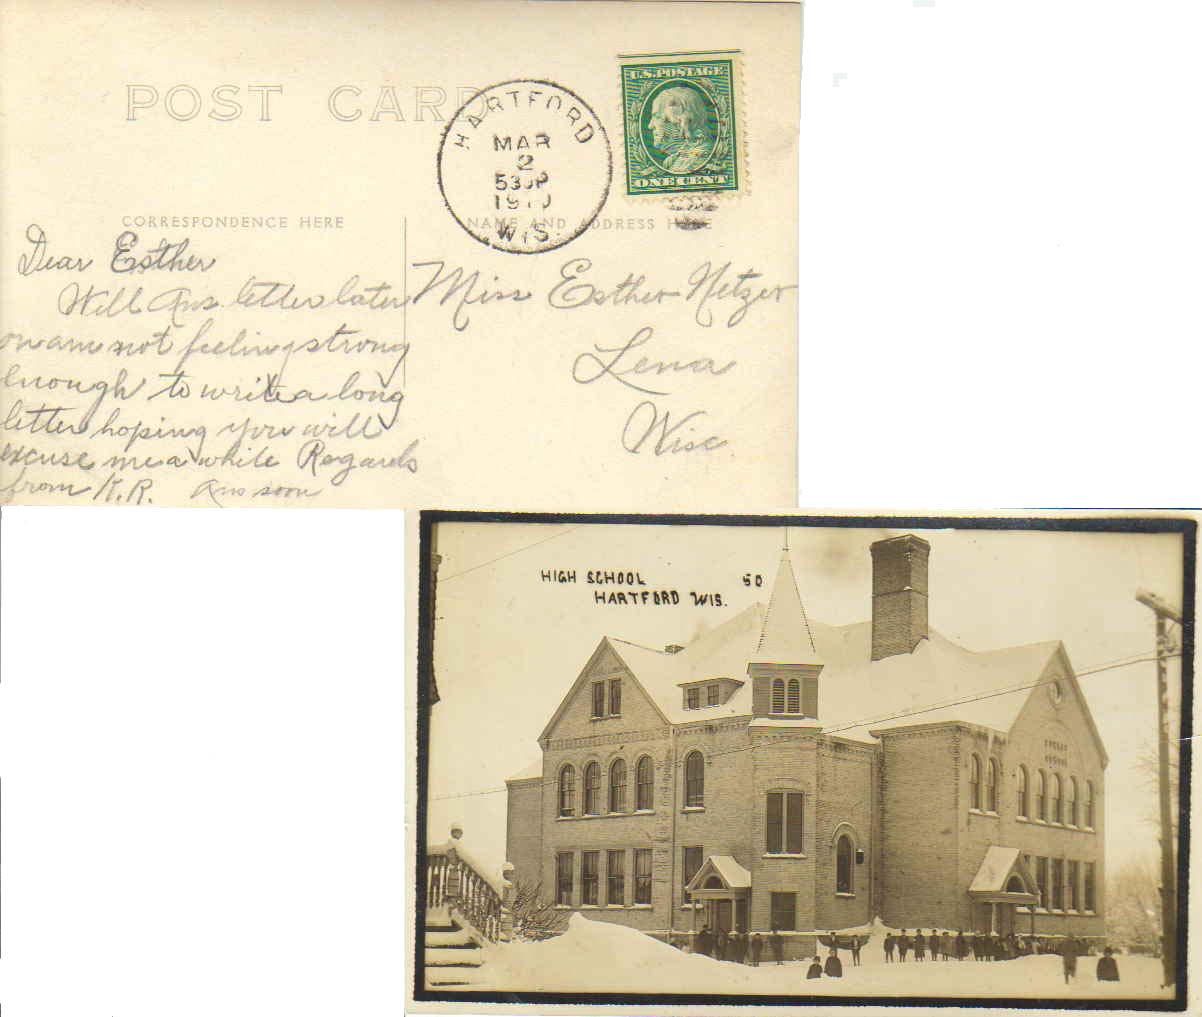 POST CARD
HARTFORD
MAR
2
530P
1910
WIS.
U.S. POSTAGE
ONE CENT
CORRESPONDENCE HERE
NAME AND ADDRESS HERE
Dear Esther
Will Ans. letter later
on am not feeling strong
enough to write a long
letter hoping you will
excuse me a while Regards
from K.R. Ans soon
Miss Esther Netzer
Lena
Wisc
HIGH SCHOOL 50
HARTFORD WIS.